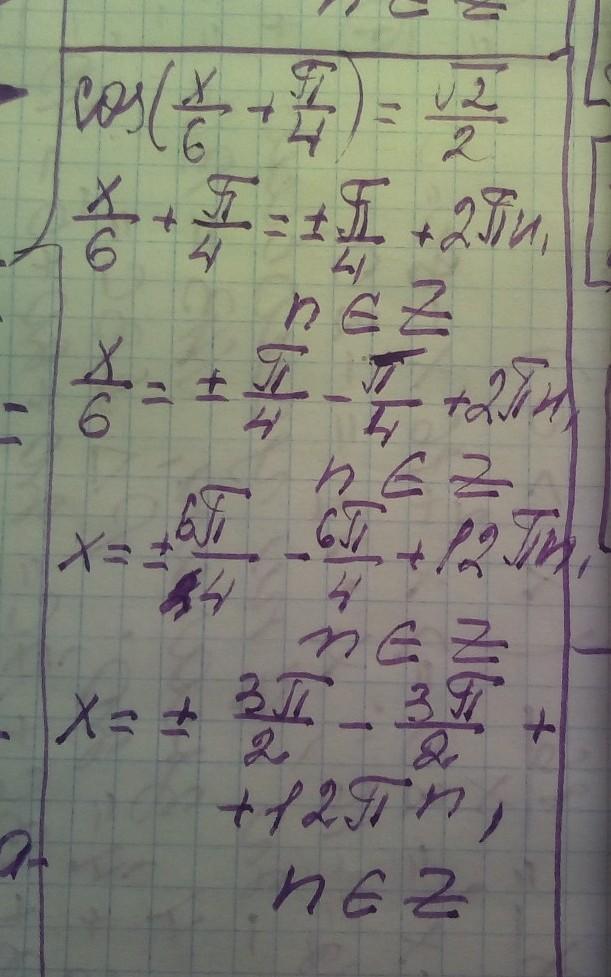 n ∈ Z
cos(x/6 + π/4) = √2/2
x/6 + π/4 = ± π/4 + 2πn,
n ∈ Z
x/6 = ± π/4 − π/4 + 2πn,
n ∈ Z
x = ± 6π/4 − 6π/4 + 12πn,
n ∈ Z
x = ± 3π/2 − 3π/2 +
+ 12πn,
n ∈ Z